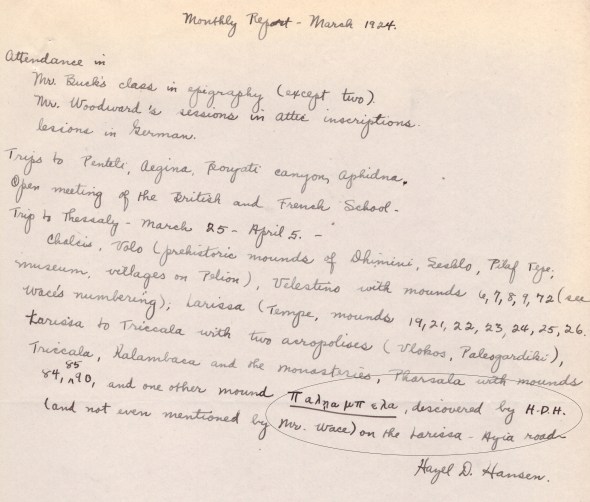 Monthly Report - March 1924.
Attendance in
Mr. Buck's class in epigraphy (except two).
Mr. Woodward's sessions in Attic inscriptions.
lessons in German.
Trips to Penteli, Aegina, canyon, Aphidna.
Open meeting of the British and French School -
Trip to Thessaly - March 25 - April 5. -
Chalcis, Volo (prehistoric mounds of Dhimini, Sesklo, Pilaf Tepe;
museum, villages on Pelion), Velestino with mounds 6, 7, 8, 9, 72 (see
Wace's numbering); Larissa (Tempe, mounds 19, 21, 22, 23, 24, 25, 26.
Larissa to Triccala with two acropolises (Vlokos, Paleogardiki),
Triccala, Kalambaca and the monasteries, Pharsala with mounds
84, 85, 90, and one other mound , discovered by H.D.H.
(and not even mentioned by Mr. Wace) on the Larissa - Ayia road
Hazel D. Hansen.